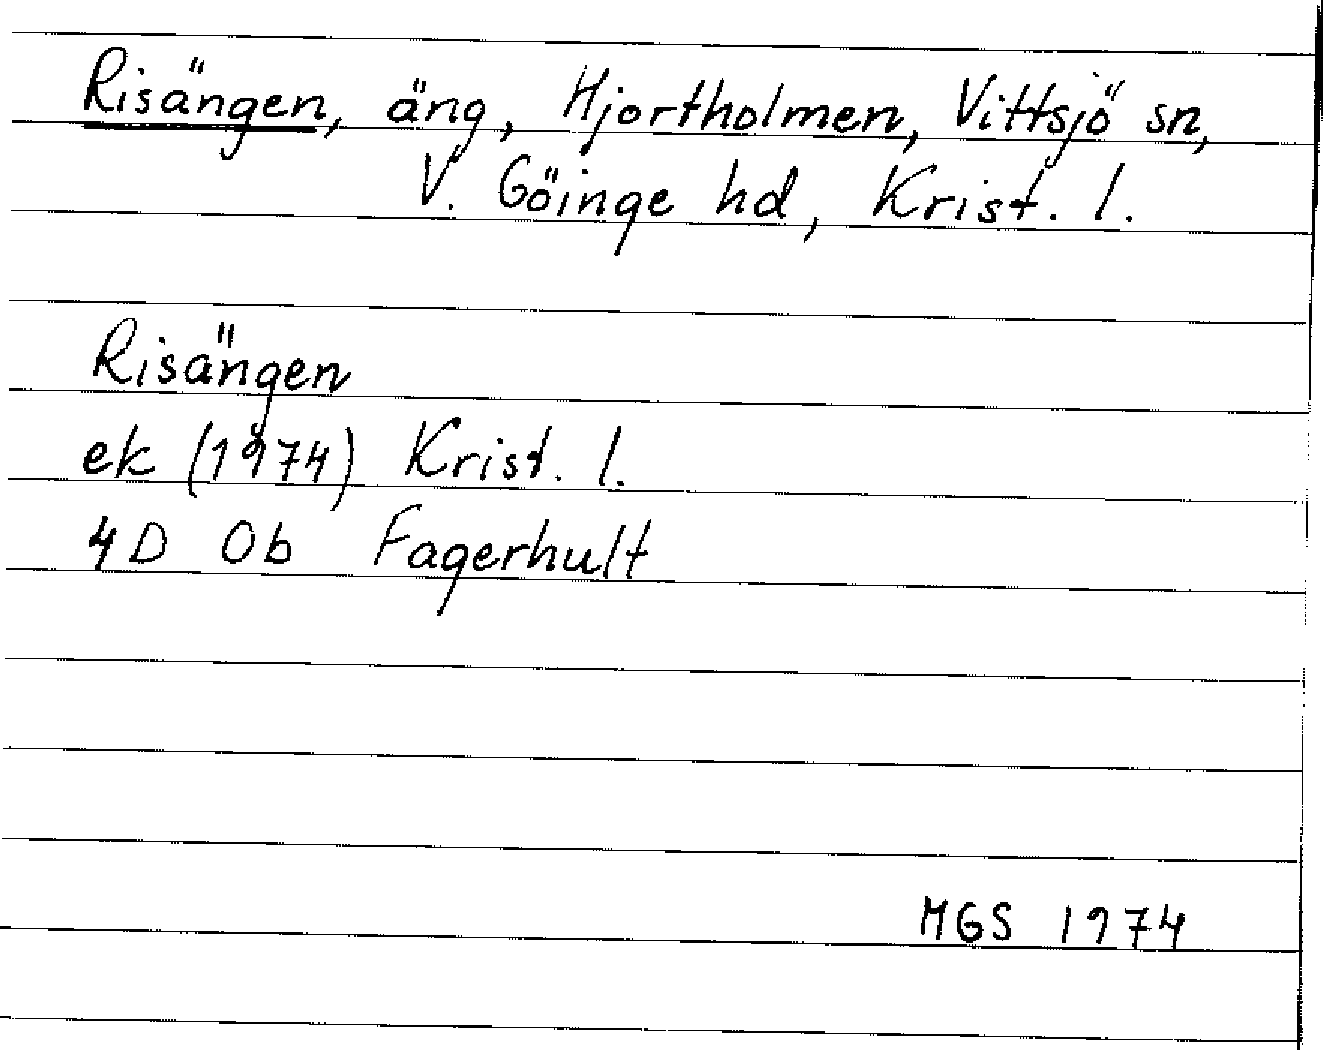 Risängen, äng, Hjortholmen, Vittsjö sn,
V. Göinge hd, Krist. l.
Risängen
ek (1974) Krist. l.
4D 0b Fagerhult
MGS 1974